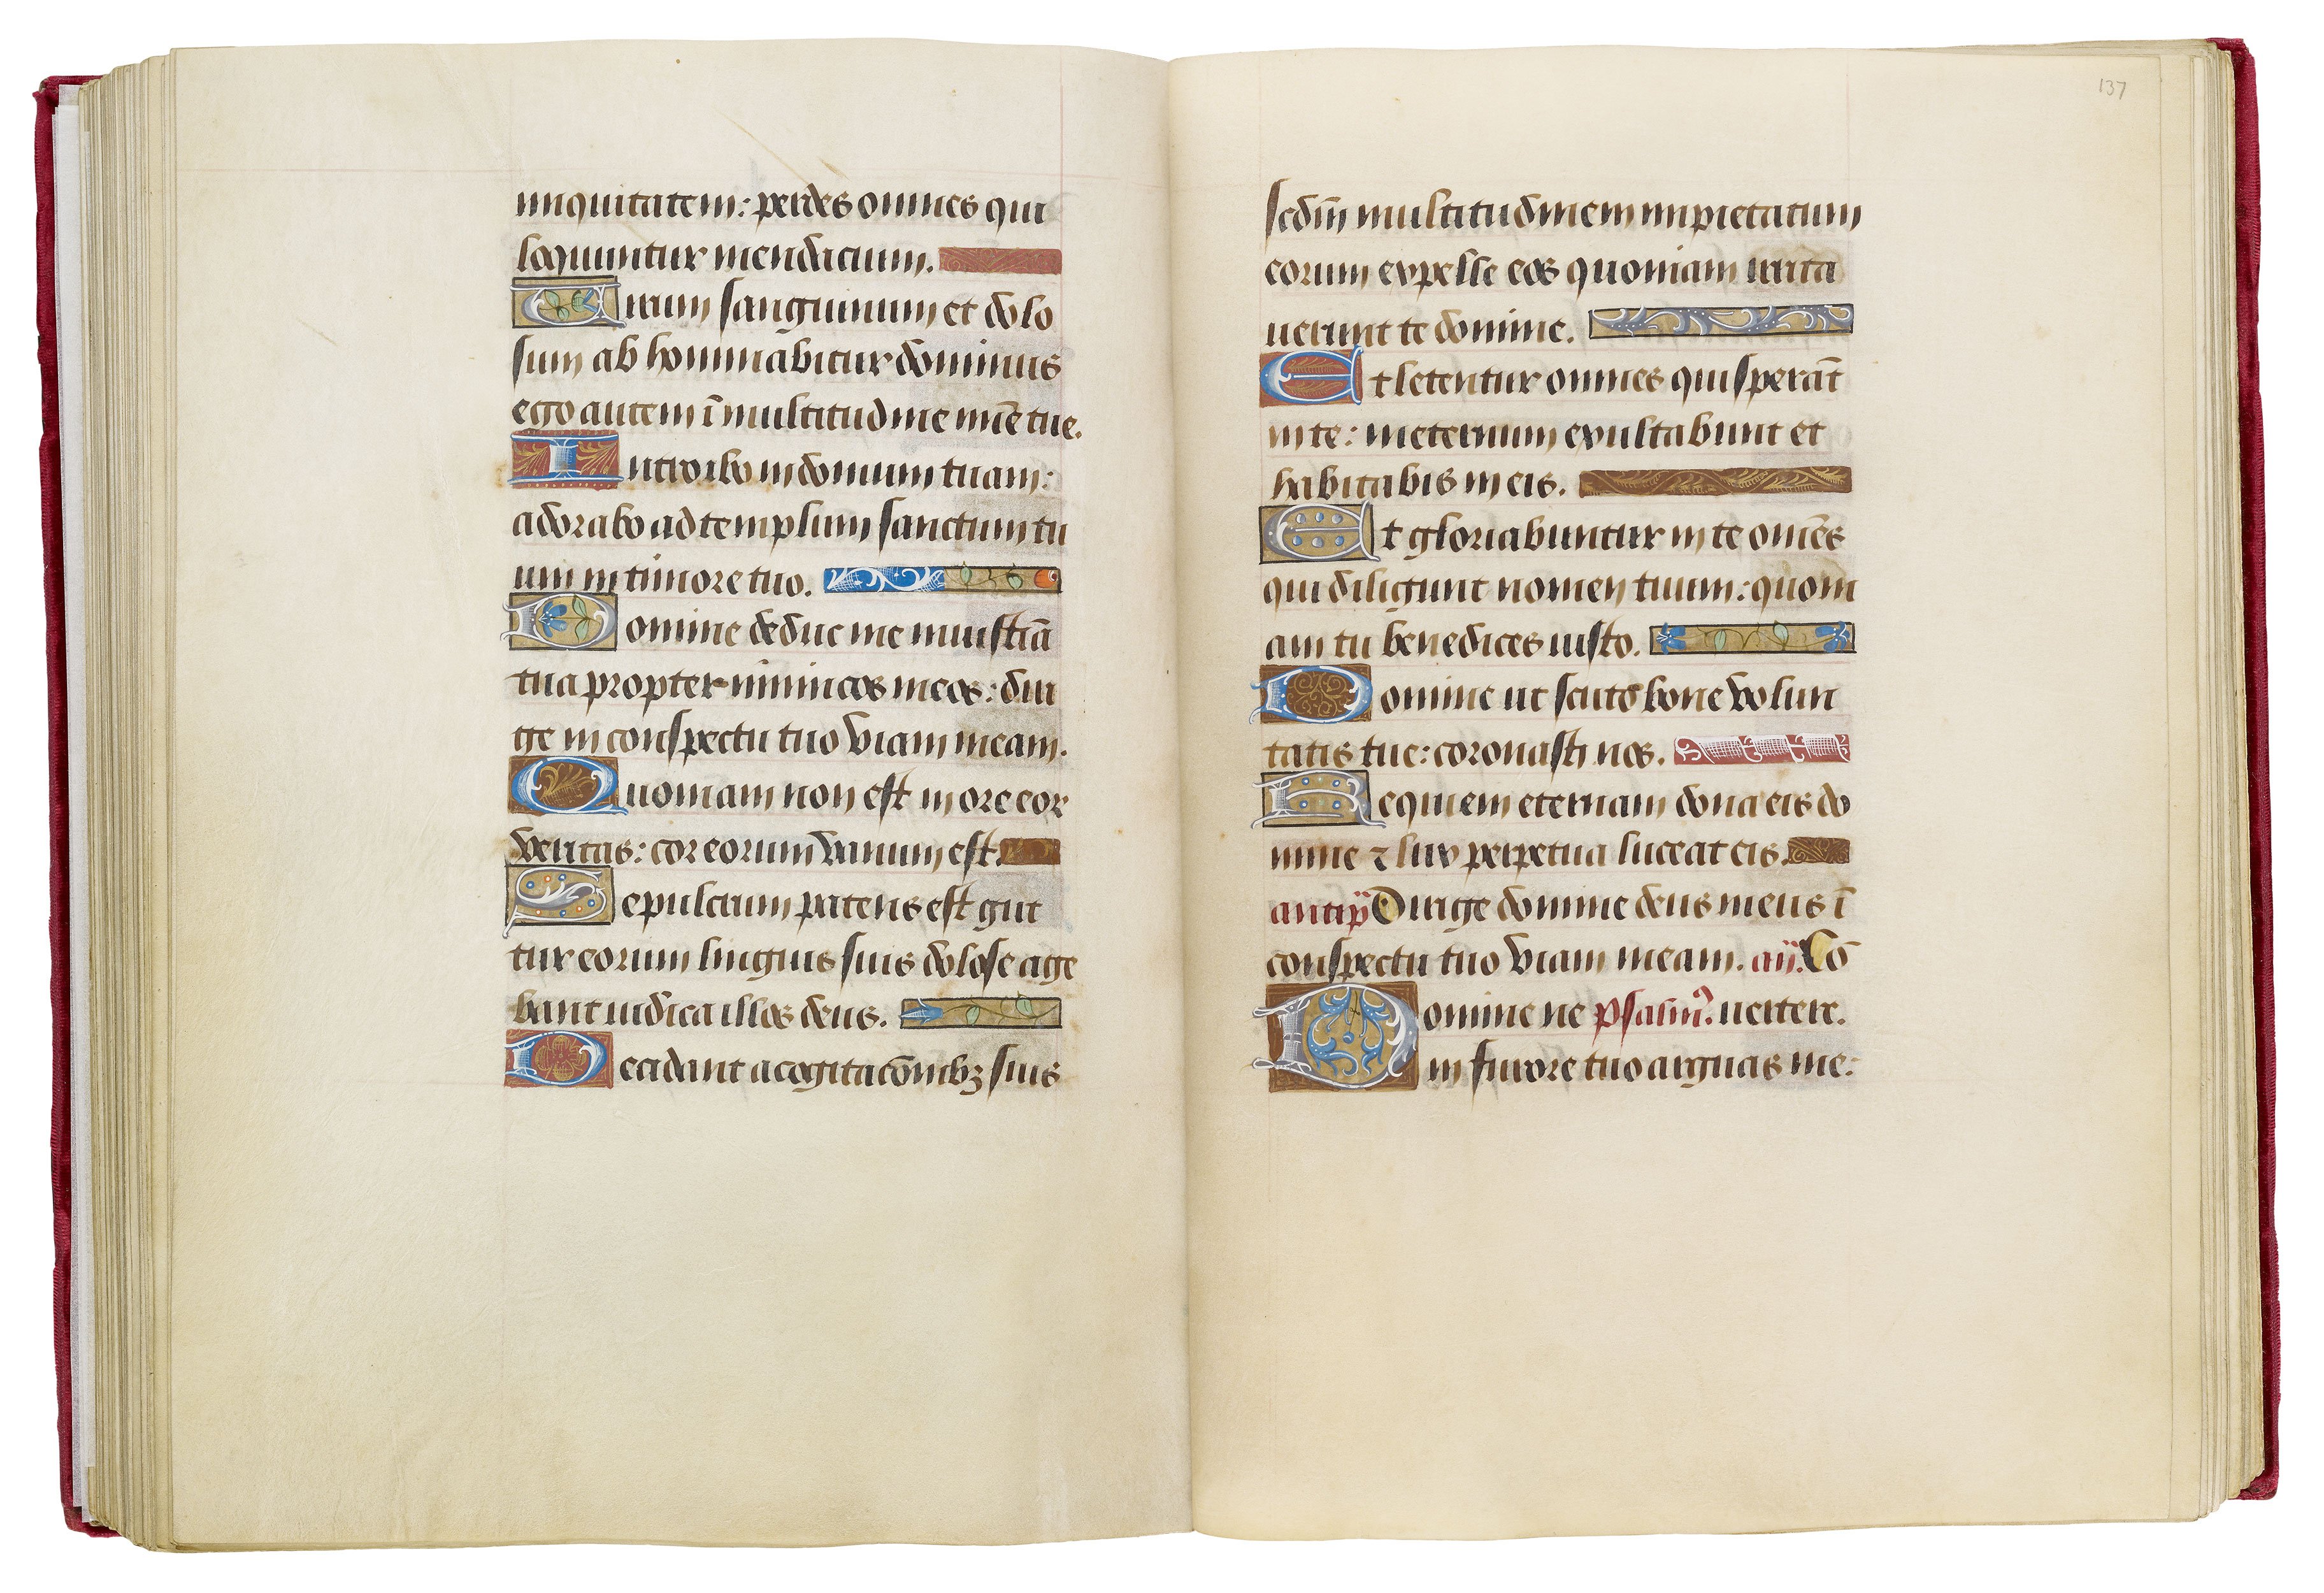 iniquitatem: perdes omnes qui
loquuntur mendacium.
Uirum sanguinum et dolo
sum abhominabitur dominus
ego autem ī multitudine mīe tue.
Introibo in domum tuam:
adorabo ad templum sanctum tu
um in timore tuo.
Domine deduc me in iusticiā
tua propter inimicos meos: diri
ge in conspectu tuo viam meam.
Quoniam non est in ore eor
veritas: cor eorum vanum est.
Sepulcrum patens est gut
tur eorum linguis suis dolose age
bant iudica illos deus.
Decidant a cogitacōnibꝫ suis
137
scdm̄ multitudinem impietatum
eorum expelle eos quoniam irrita
uerunt te domine.
Et letentur omnes qui sperāt
in te: in eternum exultabunt et
habitabis in eis.
Et gloriabuntur in te omēs
qui diligunt nomen tuum: quoni
am tu benedices iusto.
Domine ut scuto bone volun
tatis tue: coronasti nos.
Requiem eternam dona eis do
mine ⁊ lux perpetua luceat eis.
antip̄ Dirige domine deus meus ī
conspectu tuo viam meam. añ. Cō
Domine ne psalm̄. uertere.
in furore tuo arguas me: